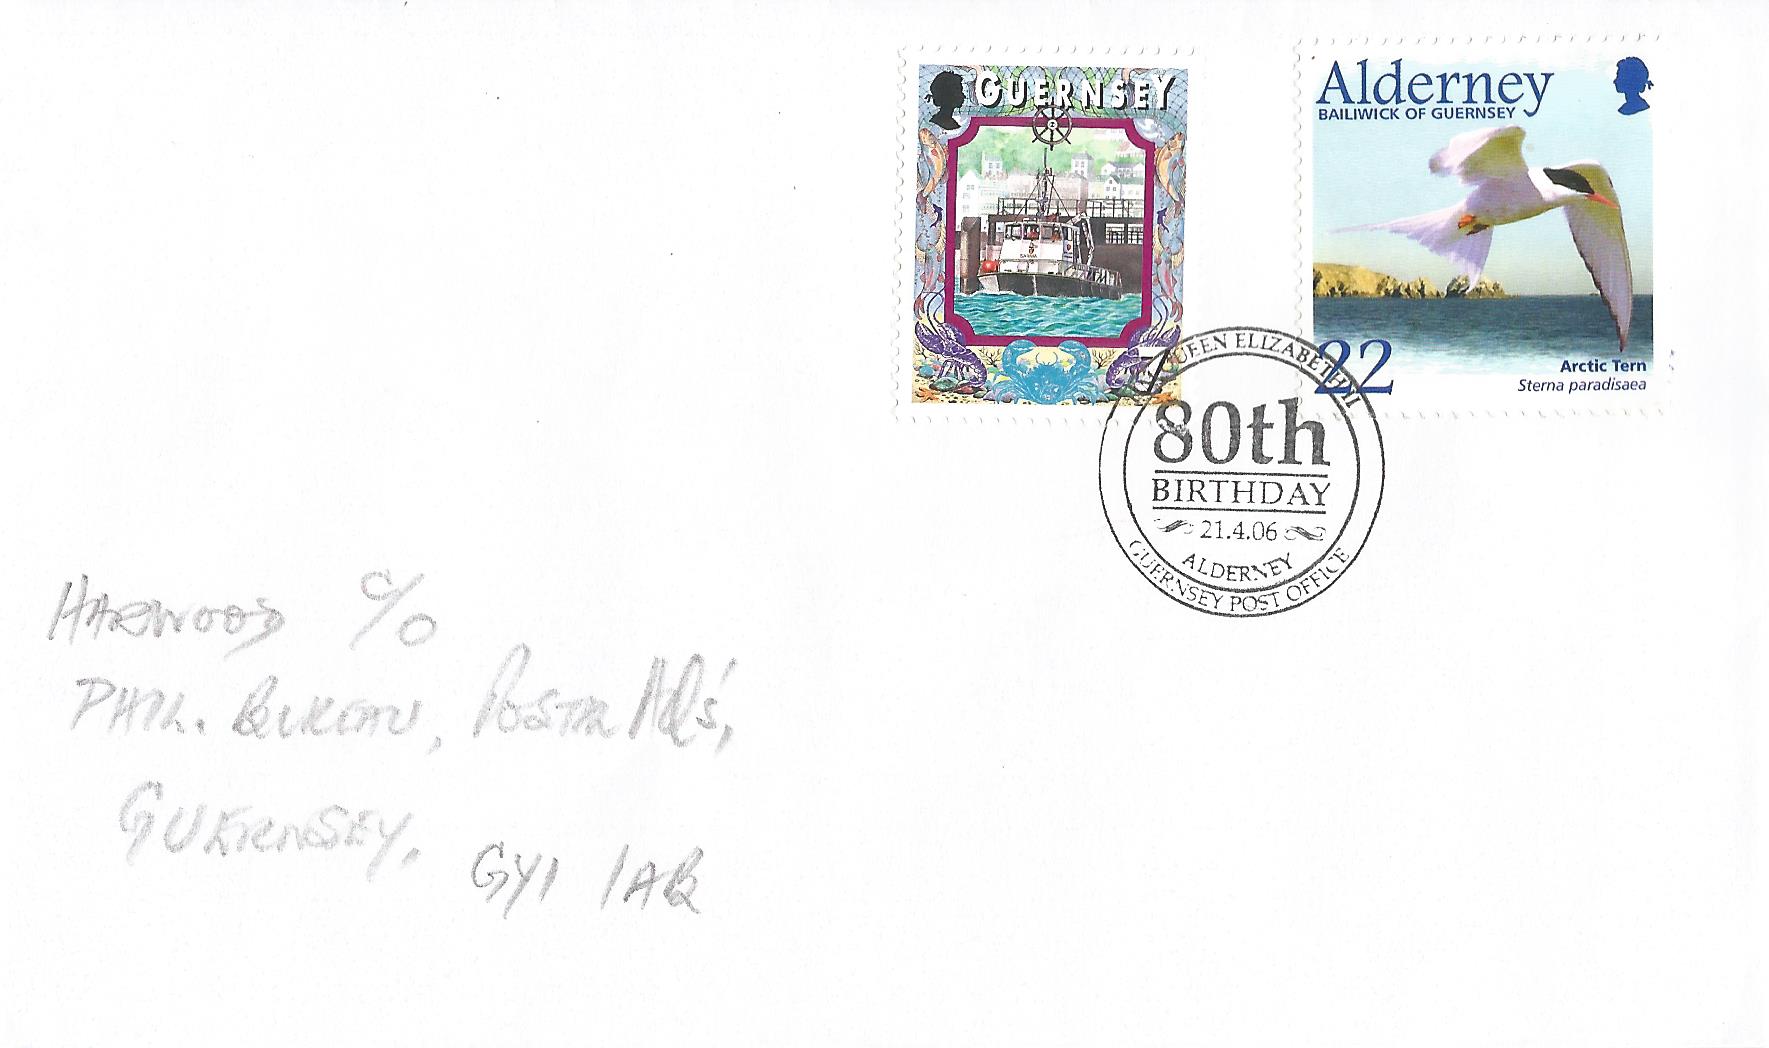 GUERNSEY
SARNIA
7
Alderney
BAILIWICK OF GUERNSEY
22
Arctic Tern
Sterna paradisaea
QUEEN ELIZABETH II
80th
BIRTHDAY
21.4.06
ALDERNEY
GUERNSEY POST OFFICE
HARWOOD C/O
PHIL. BUREAU, POSTAL HQ's,
GUERNSEY,
GY1 1AB